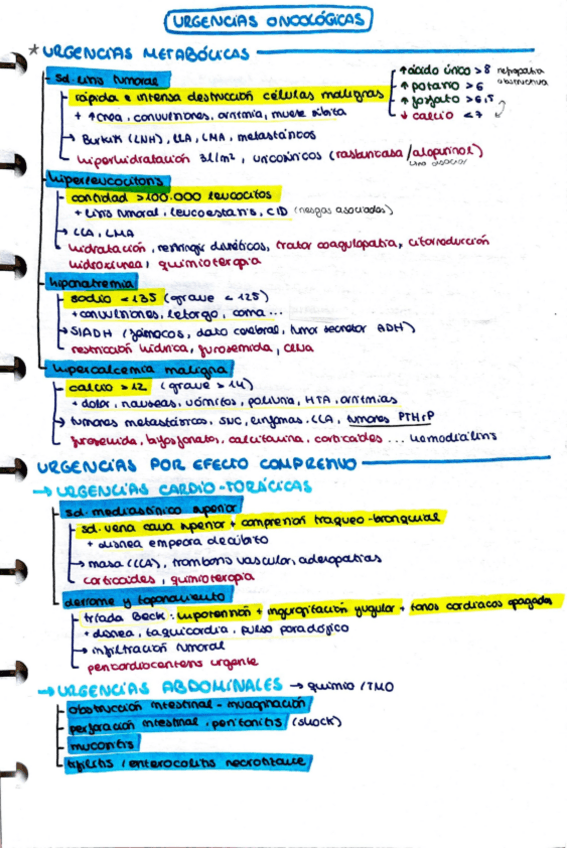 URGENCIAS ONCOLÓGICAS
* URGENCIAS METABÓLICAS
sd. lisis tumoral
↑ ácido úrico > 8 nefropatía obstructiva
↑ potasio > 6
↑ fosfato > 6,5
↓ calcio < 7
rápida e intensa destrucción células malignas
+ ↑ crea, convulsiones, arritmia, muerte súbita
→ Burkitt (LNH), LLA, LMA, metastásicos
hiperhidratación 3l/m², uricosúricos (rasburicasa / alopurinol)
hiperleucocitosis
cantidad > 100.000 leucocitos
+ lisis tumoral, leucoestasis, CID (riesgos asociados)
→ LLA, LMA
hidratación, restringir diuréticos, tratar coagulopatía, citorreducción
hidroxiurea, quimioterapia
hiponatremia
sodio < 135 (grave < 125)
+ convulsiones, letargo, coma ...
→ SIADH (fármacos, daño cerebral, tumor secretor ADH)
restricción hídrica, furosemida, ClNa
hipercalcemia maligna
calcio > 12 (grave > 14)
+ dolor, nauseas, vómitos, poliuria, HTA, arritmias
→ tumores metastásicos, SNC, linfomas, LLA, tumores PTHrP
furosemida, bifosfonatos, calcitonina, corticoides ... hemodiálisis
URGENCIAS POR EFECTO COMPRESIVO
→ URGENCIAS CARDIO-TORÁCICAS
sd. mediastínico superior
sd. vena cava superior + compresión traqueo-bronquial
+ disnea empeora decúbito
→ masa (LLA), trombosis vascular, adenopatías
corticoides, quimioterapia
derrame y taponamiento
triada Beck: hipotensión + ingurgitación yugular + tonos cardíacos apagados
+ disnea, taquicardia, pulso paradójico
→ infiltración tumoral
pericardiocentesis urgente
→ URGENCIAS ABDOMINALES → quimio / TMO
obstrucción intestinal - invaginación
perforación intestinal, peritonitis (shock)
mucositis
tiflitis / enterocolitis necrotizante